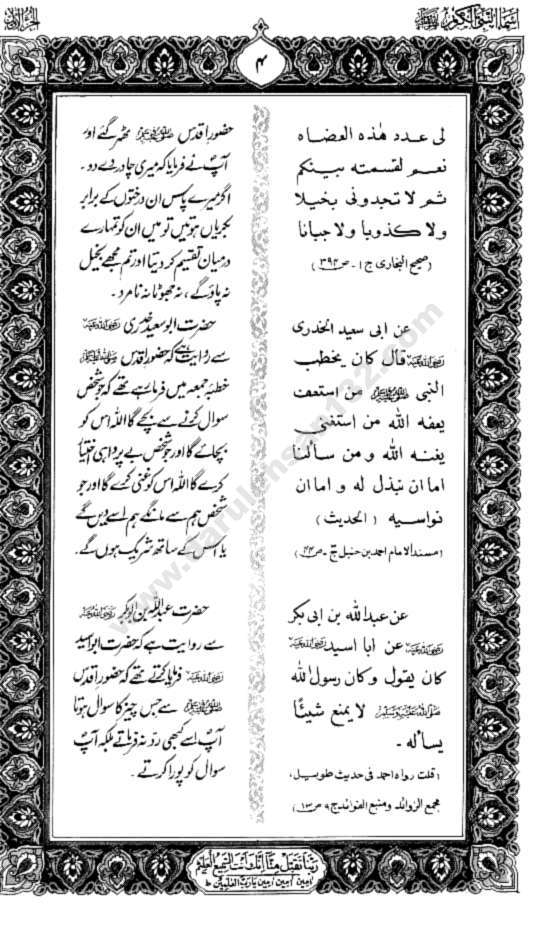 اسماء النبی الکریم ﷺ
الجزء الاول
۴
لی عدد هٰذه العضاه
نعم لقسمته بينكم
ثم لا تجدونی بخيلا
ولا كذوبا ولا جبانا
(صحیح البخاری ج ۱ - ص ۳۹۲)
عن ابی سعيد الخدری
رضی اللہ عنہ قال كان يخطب
النبی ﷺ من استعفف
يعفه الله من استغنی
يغنه الله و من سالنا
اما ان نبذل له و اما ان
نواسيه (الحديث)
(مسند الامام احمد بن حنبل ج - ص۴۴)
عن عبدالله بن ابی بكر
رضی اللہ عنہ عن ابا اسيد رضی اللہ عنہ
كان يقول و كان رسول الله
صلی اللہ علیہ وسلم لا يمنع شيئًا
يسأله -
(قلت رواه احمد فی حديث طويل،
مجمع الزوائد ومنبع الفوائد ج ۹ ص۱۳)
حضور اقدس ﷺ ٹھہر گئے اور
آپؐ نے فرمایا کہ میری چادر دے دو۔
اگر میرے پاس ان درختوں کے برابر
بکریاں ہوتیں تو میں ان کو تمہارے
درمیان تقسیم کر دیتا اور تم مجھے بخیل
نہ پاؤ گے، نہ جھوٹا نہ نامرد۔
حضرت ابو سعید خدری رضی اللہ عنہ
سے روایت ہے کہ حضور اقدس ﷺ
خطبہ جمعہ میں فرما رہے تھے کہ جو شخص
سوال کرنے سے بچے گا اللہ اس کو
بچائے گا اور جو شخص بے پرواہی اختیار
کرے گا اللہ اس کو غنی کرے گا اور جو
شخص ہم سے مانگے ہم اسے دیں گے
یا اس کے ساتھ شریک ہوں گے۔
حضرت عبداللہ بن ابو بکر رضی اللہ عنہ
سے روایت ہے کہ حضرت ابو اسید
رضی اللہ عنہ فرمایا کرتے تھے کہ حضور اقدس
ﷺ سے جس چیز کا سوال ہوتا
آپؐ اسے کبھی رد نہ فرماتے بلکہ آپؐ
سوال کو پورا کرتے۔
ربنا تقبل منا انك انت السميع العليم
امين امين امين يا رب العلمين ط